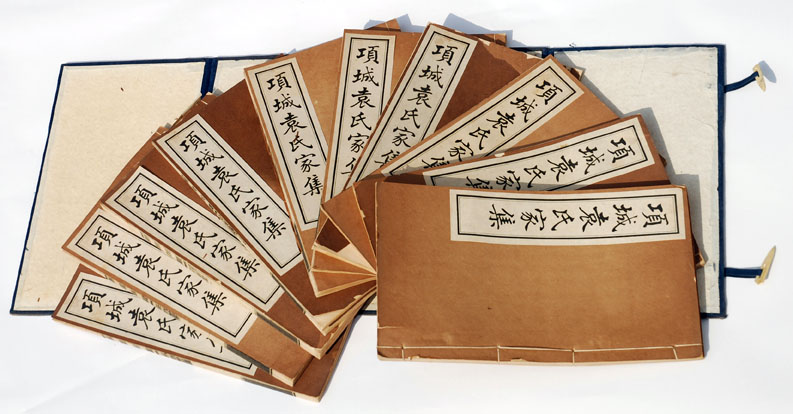 項城袁氏家
項城袁氏家集
項城袁氏家集
項城袁氏家集
項城袁氏家集
項城袁氏家集
項城袁氏家集
項城袁氏家集
項城袁氏家集
項城袁氏家集